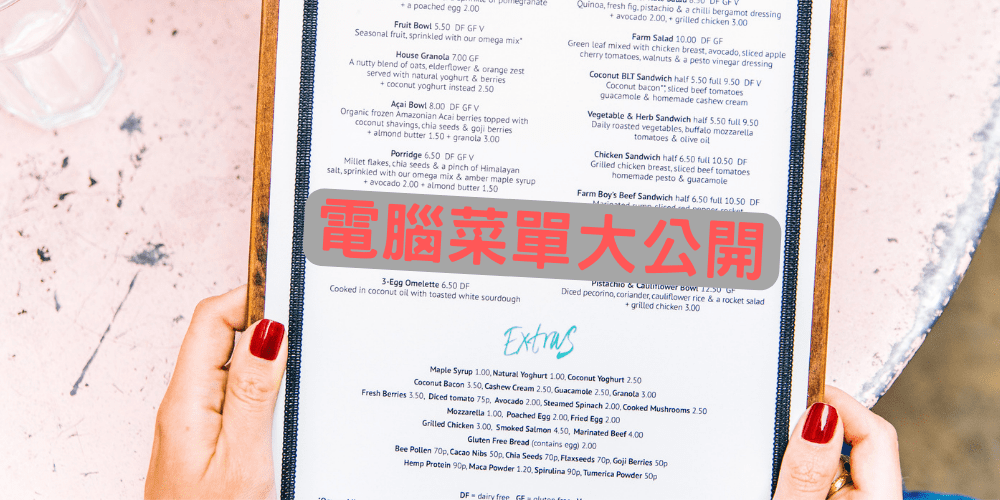 of pomegranate
+ a poached egg 2.00
Fruit Bowl 5.50 DF GF V
Seasonal fruit, sprinkled with our omega mix*
House Granola 7.00 GF
A nutty blend of oats, elderflower & orange zest
served with natural yoghurt & berries
+ coconut yoghurt instead 2.50
Açai Bowl 8.00 DF GF V
Organic frozen Amazonian Acai berries topped with
coconut shavings, chia seeds & goji berries
+ almond butter 1.50 + granola 3.00
Porridge 6.50 DF GF V
Millet flakes, chia seeds & a pinch of Himalayan
salt, sprinkled with our omega mix & amber maple syrup
+ avocado 2.00 + almond butter 1.50
3-Egg Omelette 6.50 DF
Cooked in coconut oil with toasted white sourdough
Quinoa, fresh fig, pistachio & a chilli bergamot dressing
+ avocado 2.00, + grilled chicken 3.00
Farm Salad 10.00 DF GF
Green leaf mixed with chicken breast, avocado, sliced apple
cherry tomatoes, walnuts & a pesto vinegar dressing
Coconut BLT Sandwich half 5.50 full 9.50 DF V
Coconut bacon**, sliced beef tomatoes
guacamole & homemade cashew cream
Vegetable & Herb Sandwich half 5.50 full 9.50
Daily roasted vegetables, buffalo mozzarella
tomatoes & olive oil
Chicken Sandwich half 6.50 full 10.50 DF
Grilled chicken breast, sliced beef tomatoes
homemade pesto & guacamole
Farm Boy's Beef Sandwich half 6.50 full 10.50 DF
Pistachio & Cauliflower Bowl 12.50 GF
Diced pecorino, coriander, cauliflower rice & a rocket salad
+ grilled chicken 3.00
電腦菜單大公開
Extras
Maple Syrup 1.00, Natural Yoghurt 1.00, Coconut Yoghurt 2.50
Coconut Bacon 3.50, Cashew Cream 2.50, Guacamole 2.50, Granola 3.00
Fresh Berries 3.50, Diced tomato 75p, Avocado 2.00, Steamed Spinach 2.00, Cooked Mushrooms 2.50
Mozzarella 1.00, Poached Egg 2.00, Fried Egg 2.00
Grilled Chicken 3.00, Smoked Salmon 4.50, Marinated Beef 4.00
Gluten Free Bread (contains egg) 2.00
Bee Pollen 70p, Cacao Nibs 50p, Chia Seeds 70p, Flaxseeds 70p, Goji Berries 50p
Hemp Protein 90p, Maca Powder 1.20, Spirulina 90p, Tumerica Powder 50p
DF = dairy free GF = gluten free